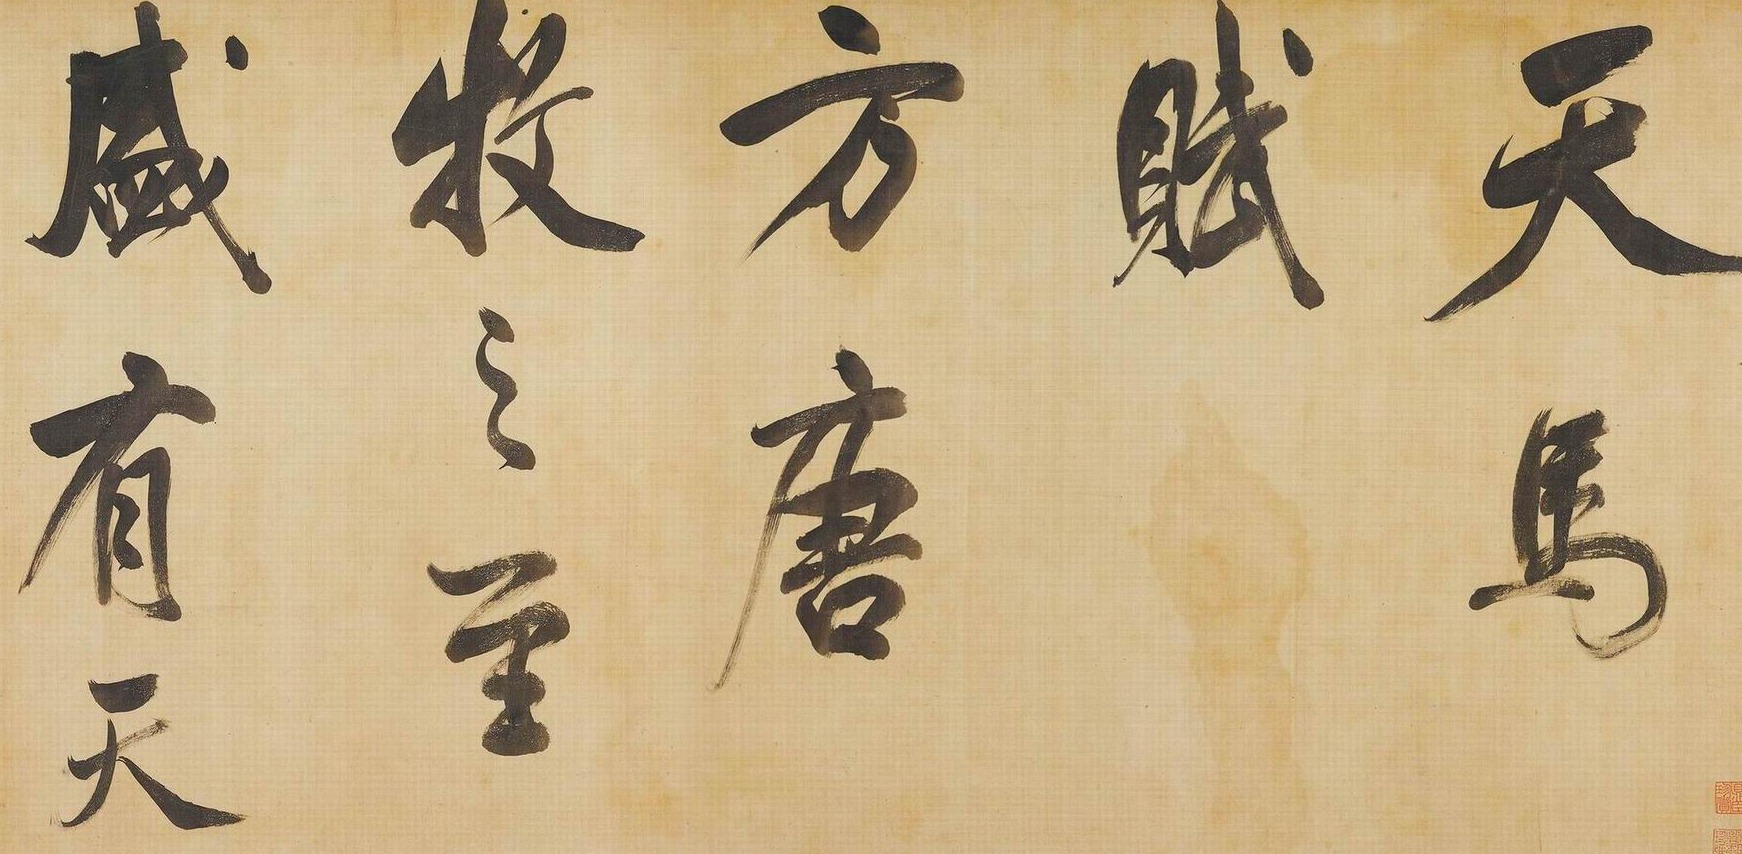 天馬
賦
方唐
牧之至
盛有天